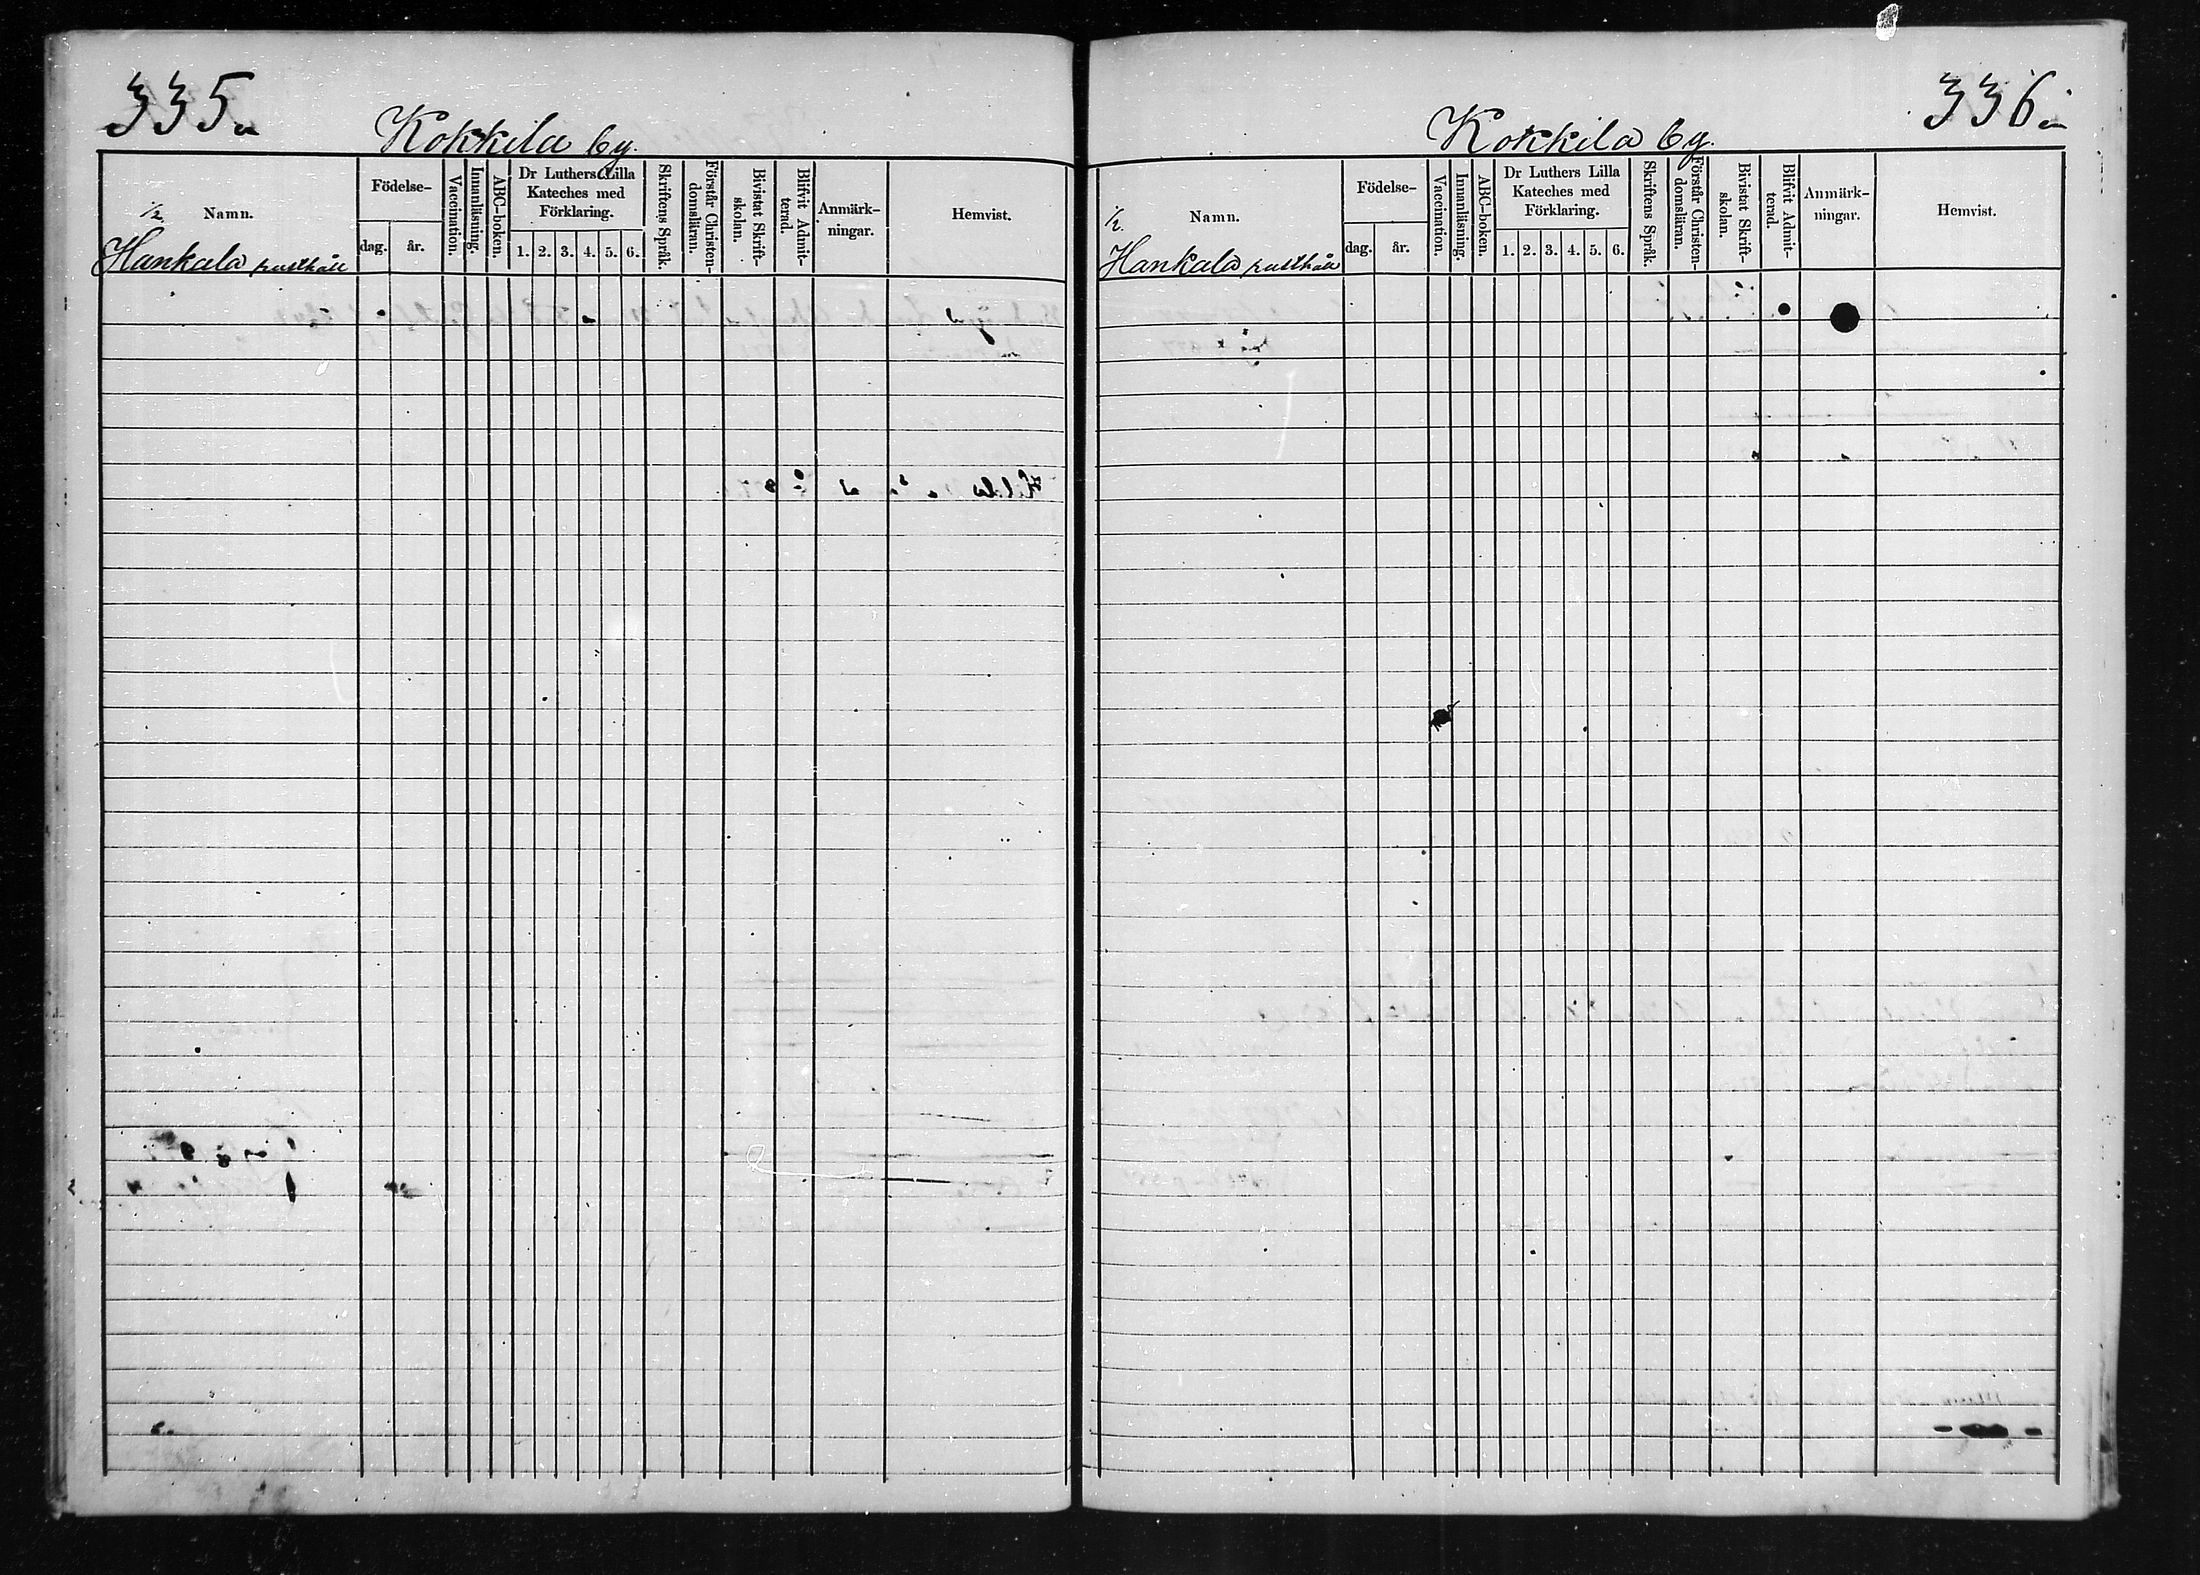 335.
Kokkila by.
½ Namn.
Födelse-
dag. år.
Vaccination.
Innanläsning.
ABC-boken.
Dr Luthers Lilla
Kateches med
Förklaring.
1. 2. 3. 4. 5. 6.
Skriftens Språk.
Förstår Christen-
domsläran.
Bivistat Skrift-
skolan.
Blifvit Admit-
terad.
Anmärk-
ningar.
Hemvist.
Hankala rusthåll
336.
Kokkila by.
½ Namn.
Födelse-
dag. år.
Vaccination.
Innanläsning.
ABC-boken.
Dr Luthers Lilla
Kateches med
Förklaring.
1. 2. 3. 4. 5. 6.
Skriftens Språk.
Förstår Christen-
domsläran.
Bivistat Skrift-
skolan.
Blifvit Admit-
terad.
Anmärk-
ningar.
Hemvist.
Hankala rusthåll